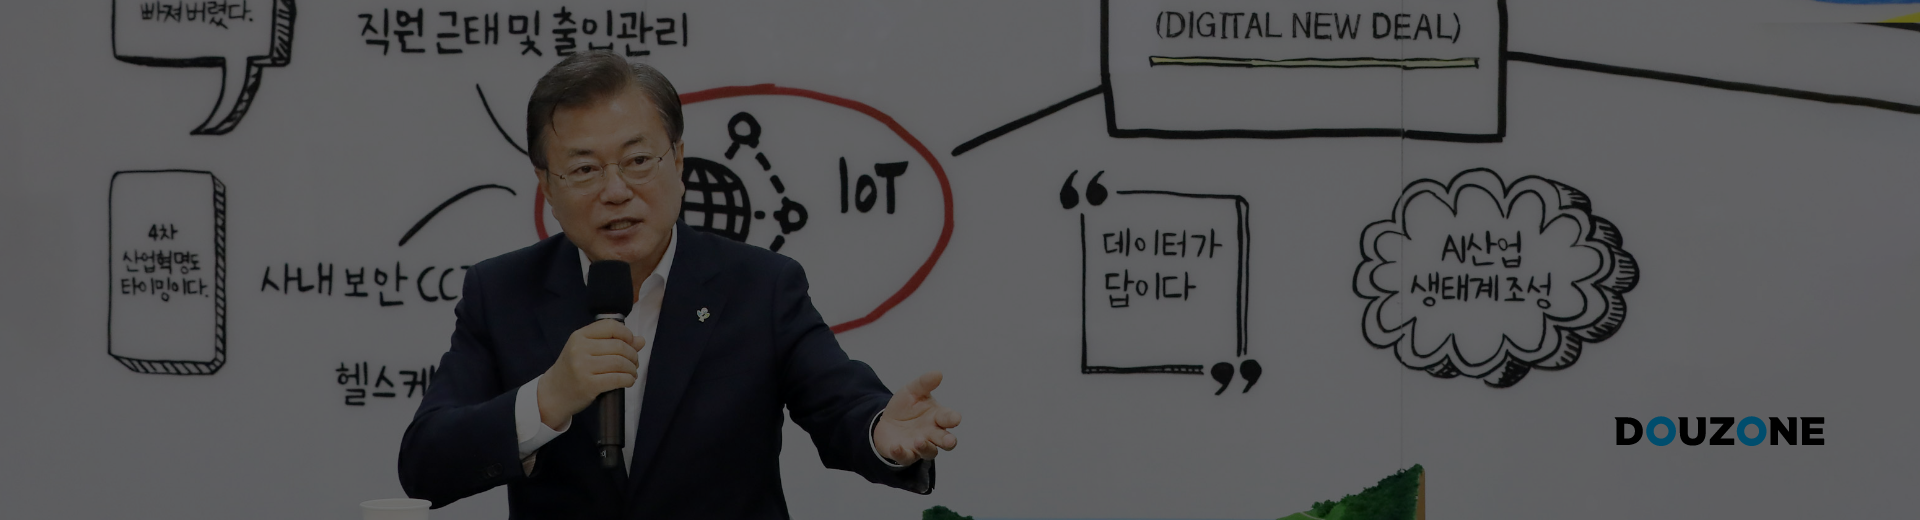 빠져버렸다.
직원 근태 및 출입관리
(DIGITAL NEW DEAL)
IoT
4차
산업혁명도
타이밍이다.
사내 보안 CC
헬스케
데이터가
답이다
AI산업
생태계조성
DOUZONE